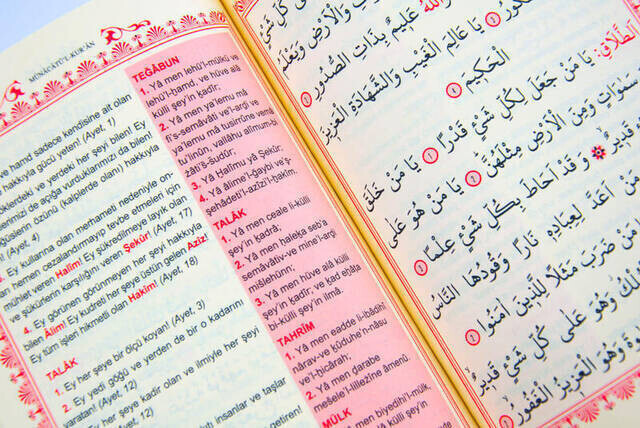 MÜNÂCÂTÜ'L-KUR'ÂN
ve hamd sadece kendisine ait olan
hakkıyla gücü yeten! (Ayet, 1)
klerdeki ve yerdeki her şeyi bilen! Ey
erimizi de açığa vurduklarımızı da bilen!
ğüslerin özünü (kalplerde olanı) hakkıyla
(Ayet, 4)
3. Ey kullarına olan merhameti nedeniyle on-
arı hemen cezalandırmayıp tevbe etmeleri için
mühlet veren Halîm! Ey şükredilmeye layık olan
ve şükürlerin karşılığını veren Şekûr! (Ayet, 17)
4. Ey görünen görünmeyen her şeyi hakkıyla
bilen Âlim! Ey kudreti her şeye üstün gelen Azîz!
Ey tüm işleri hikmetli olan Hakîm! (Ayet, 18)
TALÂK
1. Ey her şeye bir ölçü koyan! (Ayet, 3)
2. Ey yedi göğü ve yerden de bir o kadarını
yaratan! (Ayet, 12)
Ey her şeye kadir olan ve ilmiyle her şeyi
(Ayet, 12)
utı insanlar ve taşlar
getiren!
TEĞÂBUN
1. Yâ men lehü'l-mülkü ve
lehü'l-hamd, ve hüve alâ
külli şey'in kadîr;
2. Yâ men ya'lemu mâ
fi's-semâvâti ve'l-arḍi ve
ya'lemu mâ tusirrûne vemâ
tu'linûn, vallâhu alîmum-bi
ẕâti's-ṣudûr;
3. Yâ Halîmu yâ Şekûr;
4. Yâ âlime'l-ğaybi ve'ş-
şehâdeti'l-azîzi'l-ḥakîm.
TALÂK
1. Yâ men ceale li-külli
şey'in ḳadrâ;
2. Yâ men haleḳa seb'a
semâvâtiv-ve mine'l-arḍi
miślehünn;
3. Yâ men hüve alâ külli
şey'in ḳadîr, ve ḳad eḥâṭa
bi-külli şey'in ilmâ.
TAHRÎM
1. Yâ men eadde li-ibâdihî
nârav-ve kûduhe'n-nâsu
ve'l-ḥicârah;
2. Yâ men ḍarabe
meśele'l-lillezîne âmenû.
MÜLK
men biyedihi'l-mülk,
alâ külli şey'in
كُلِّ شَيْءٍ
اللّٰهُ عَلِيمٌ بِذَاتِ الصُّدُورِ
وَالْاَرْضِ وَيَعْلَمُ
شَكُورُ ٤ يَا عَالِمَ الْغَيْبِ وَالشَّهَادَةِ الْعَزِيزُ
الْحَكِيمُ
الطَّلَاقِ: يَا مَنْ جَعَلَ لِكُلِّ شَيْءٍ قَدْرًا ١ يَا مَنْ خَلَقَ
سَمٰوَاتٍ وَمِنَ الْاَرْضِ مِثْلَهُنَّ ٢ يَا مَنْ هُوَ عَلٰى
قَدِيرٌ وَقَدْ اَحَاطَ بِكُلِّ شَيْءٍ عِلْمًا
مَنْ اَعَدَّ لِعِبَادِهِ نَارًا وَقُودُهَا النَّاسُ
مَنْ ضَرَبَ مَثَلًا لِلَّذِينَ اٰمَنُوا
الْمُلْكُ وَهُوَ عَلٰى كُلِّ شَيْءٍ قَدِيرٌ
وَهُوَ الْعَزِيزُ الْغَفُورُ